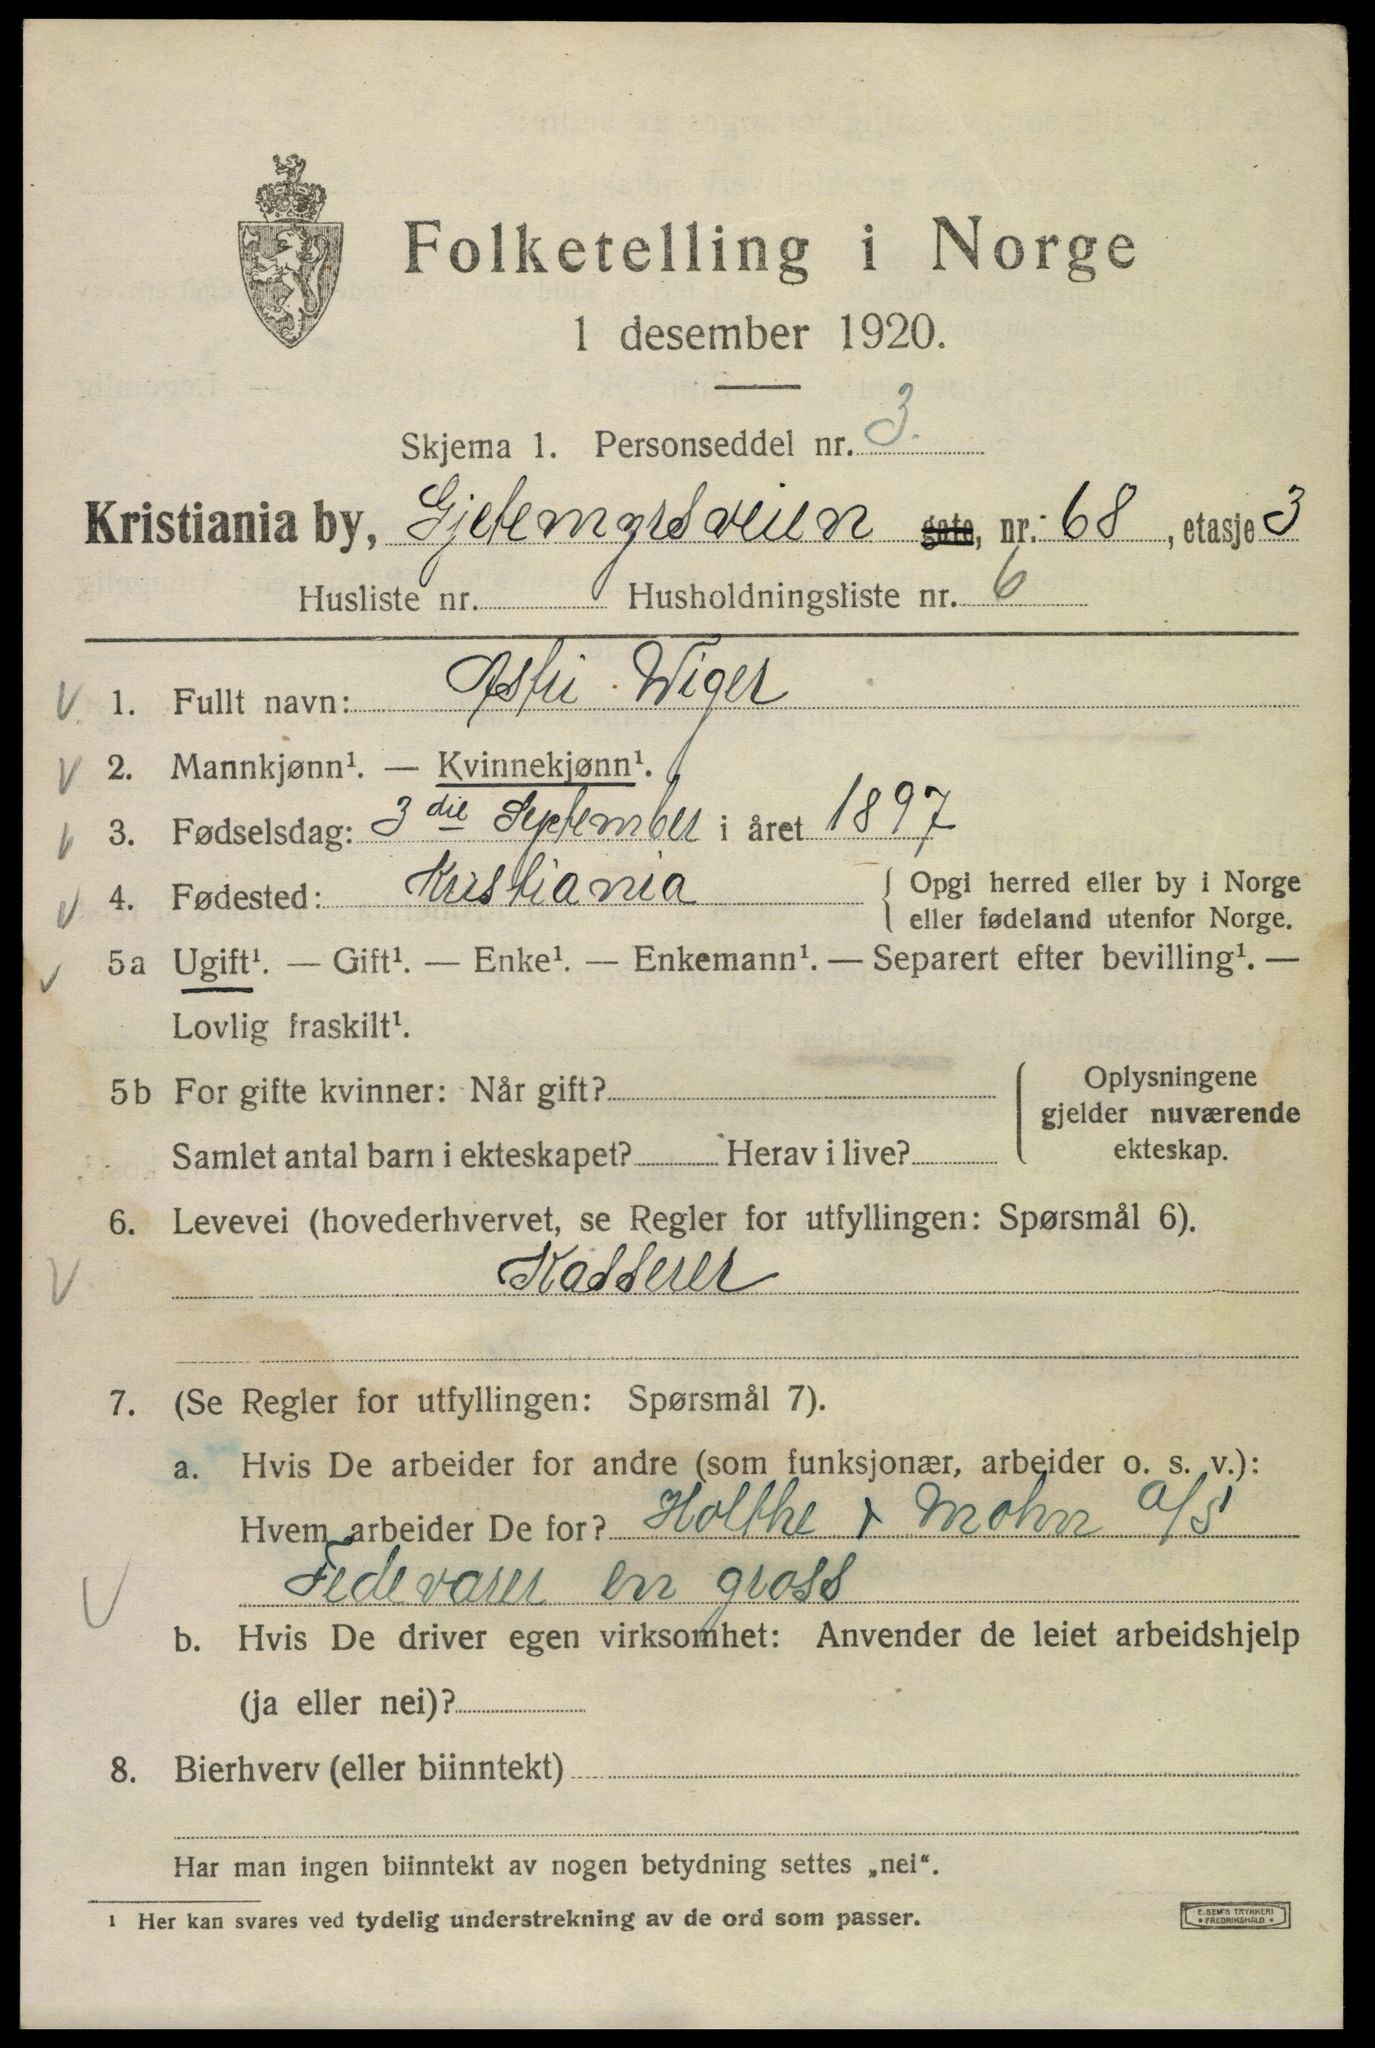 Folketelling i Norge
1 desember 1920.
Skjema 1. Personseddel nr. 3.
Kristiania by, Gjetemyrsveien gate, nr. 68, etasje 3
Husliste nr. Husholdningsliste nr. 6
1. Fullt navn: Astri Wiger
2. Mannkjønn¹. — Kvinnekjønn¹.
3. Fødselsdag: 3die September i året 1897
4. Fødested: Kristiania { Opgi herred eller by i Norge
eller fødeland utenfor Norge.
5a Ugift¹. — Gift¹. — Enke¹. — Enkemann¹. — Separert efter bevilling¹. —
Lovlig fraskilt¹.
5b For gifte kvinner: Når gift?
Samlet antal barn i ekteskapet? Herav i live?
Oplysningene
gjelder nuværende
ekteskap.
6. Levevei (hovederhvervet, se Regler for utfyllingen: Spørsmål 6).
Kasserer
7. (Se Regler for utfyllingen: Spørsmål 7).
a. Hvis De arbeider for andre (som funksjonær, arbeider o. s. v.):
Hvem arbeider De for? Holthe & Mohn A/S
Fedevarer en gross
b. Hvis De driver egen virksomhet: Anvender de leiet arbeidshjelp
(ja eller nei)?
8. Bierhverv (eller biinntekt)
Har man ingen biinntekt av nogen betydning settes „nei“.
¹ Her kan svares ved tydelig understrekning av de ord som passer.
E. SEM'S TRYKKERI
FREDRIKSHALD